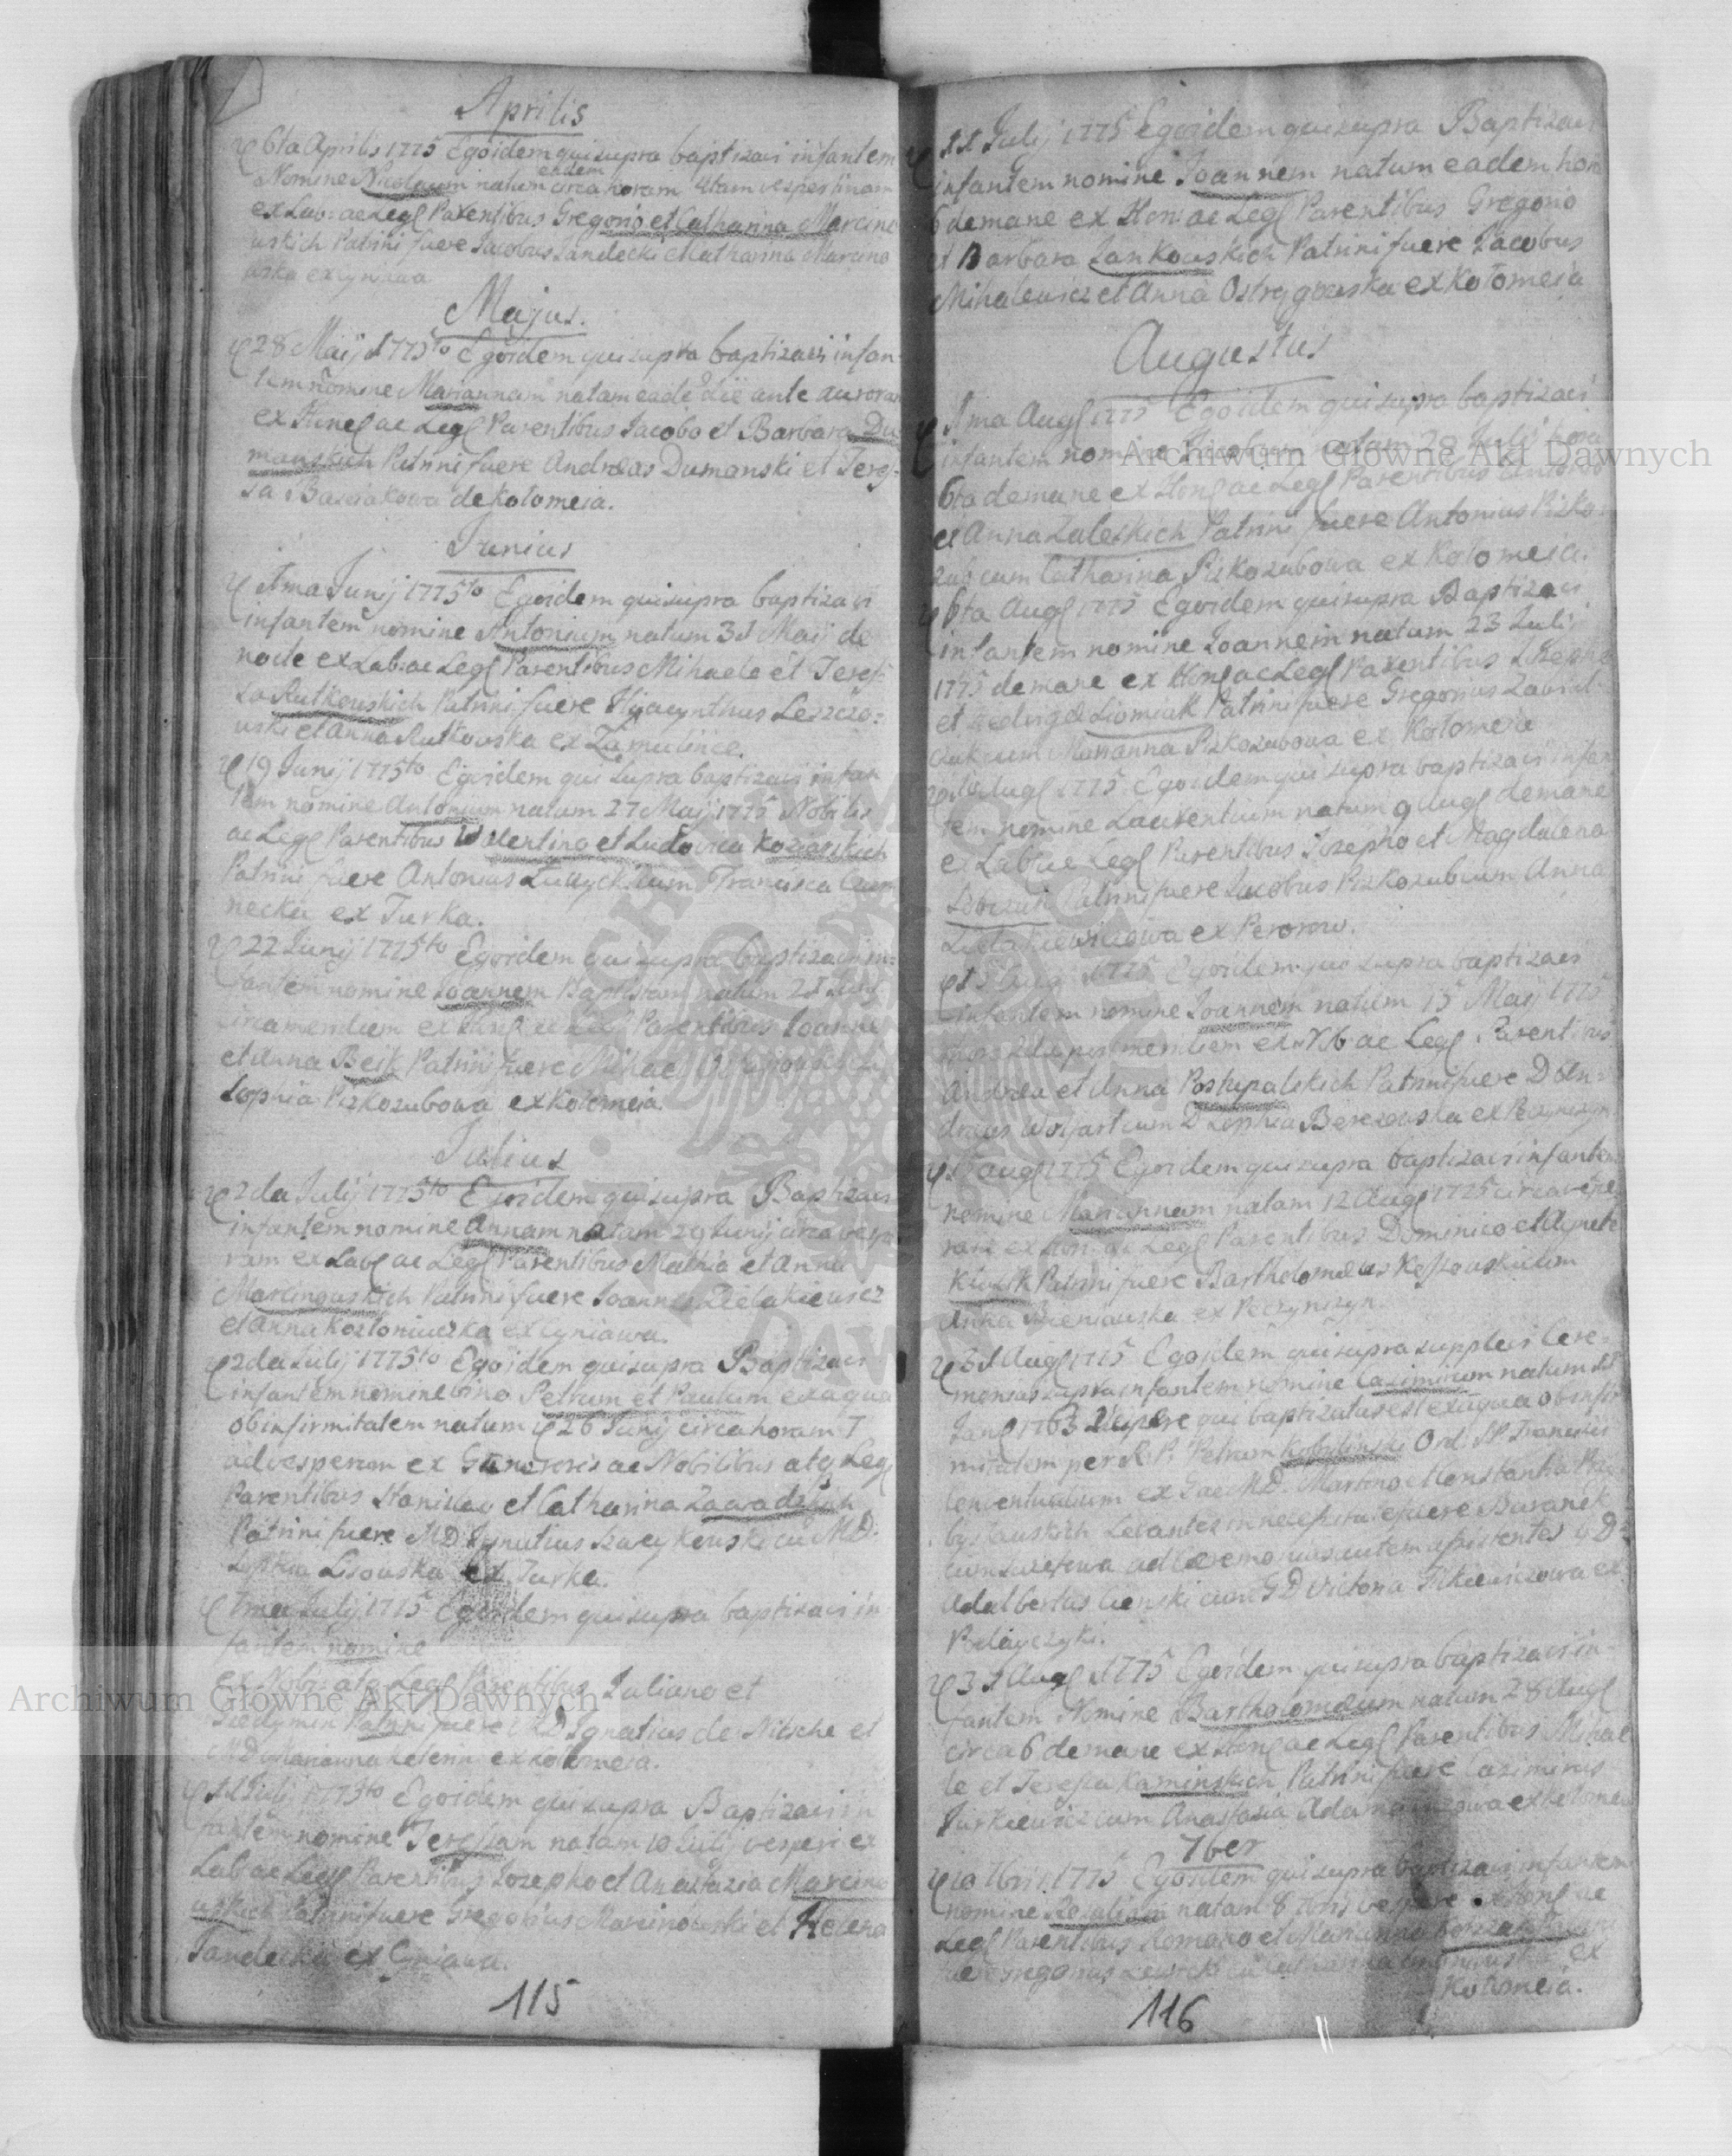 Aprilis
6ta Aprilis 1775 Ego idem qui supra baptizavi infantem
Nomine Nicolaum natum eadem circa horam 4tam vespertinam
ex Lab: ac Leg Parentibus Gregorio et Catharina Marcino
wskich Patrini fuere Jacobus Jandecki Catharina Marcino
wska ex Cyniawa
Majus.
28 Maij 1775to Ego idem qui supra baptizavi infan
tem nomine Mariannam natam eade Die ante auroram
ex Hone ac Leg Parentibus Jacobo et Barbara Du
manskich Patrini fuere Andreas Dumanski et There
sa de Kołomeia.
Junius
1ma Junij 1775to Ego idem qui supra baptizavi
infantem nomine Antonium natum 31 Maij de
nocte ex Lab: ac Leg Parentibus Mihaele et Teres
sa Rutkowskich Patrini fuere Hyacynthus Leszczo=
wski et Anna Rutkowska ex Zamulince.
19 Junij 1775to Ego idem qui supra baptizavi infan
tem nomine Antonium natum 27 Maij 1775 Nobilis
ac Leg Parentibus Walentino et Ludovica Koziarskich
Patrini fuere Antonius cum Francisca
necka ex Turka.
22 Junij 1775to Ego idem qui supra baptizavi in=
fantem nomine Joannem Baptistam natum 21 Junij
circa meridiem ex Hone ac Leg Parentibus Joanne
et Anna Beik Patrini fuere Mihael
Sophia Pizkozubowa ex Kołomeia.
Julius
2da Julij 1775to Ego idem qui supra Baptizavi
infantem nomine Annam natam 29 Junij circa vespe
ram ex Lab ac Leg Parentibus Mathia et Anna
Marcinowskich Patrini fuere Joannes Zielakiewicz
et Anna Kozłoniuczka ex Cyniawa.
2da Julij 1775to Ego idem qui supra Baptizavi
infantem nomine bino Petrum et Paulum ex aqua
ob infirmitatem natum 26 Junij circa horam 7
ad vesperam ex Generosis ac Nobilibus atq Leg
Parentibus Stanislao et Catharina Zawadzkich
Patrini fuere MD Ignatius cu MD
Sophia Lisowska ex Turka.
7ma Julij 1775 Ego idem qui supra baptizavi in
fantem nomine
ex Nobis atq Leg Parentibus Juliano et
Patrini fuere MD Ignatius de Nitsche et
MD Marianna ex Kołomeia.
11 Julij 1775to Ego idem qui supra Baptizavi in
fantem nomine Teressam natam 10 Julij vesperi ex
Lab ac Leg Parentibus Josepho et Anastazia Marcino
wskich Patrini fuere Gregorius Marcinowski et Helena
Jandecka ex Cniawa.
115
11 Julij 1775 Ego idem qui supra Baptizavi
infantem nomine Joannem natum eadem hora
6 de mane ex Hon: ac Leg Parentibus Gregorio
et Barbara Jankowskich Patrini fuere Jacobus
Mihalewicz et Anna Ostrygowska ex Kołomeia
Augustus
1ma Aug 1775 Ego idem qui supra baptizavi
infantem nomine Jacobum natum 28 Julij hora
6ta de mane ex Hone ac Leg Parentibus Antonio
et Anna Zaleskich Patrini fuere Antonius Pizko
zub cum Catharina Pizkozubowa ex Kołomeia.
6ta Aug 1775 Ego idem qui supra Baptizavi
infantem nomine Joannem natum 23 Julij
1775 de mane ex Hone ac Leg Parentibus
et Liomiak Patrini fuere Gregorius
cum Marianna Pizkozubowa ex Kołomeia
Aug 1775 Ego idem qui supra baptizavi infan
tem nomine Laurentium natum 9 Aug de mane
ex Lab ac Leg Parentibus Josepho et Magdalena
Patrini fuere Jacobus Pizkozub cum Anna
Zielakiewiczowa ex
Aug 1775 Ego idem qui supra baptizavi
infantem nomine Joannem natum 15 Maij 1775
meridiem ex Nb ac Leg Parentibus
Andrea et Anna Postupalskich Patrini fuere D An
dreas Wolfart cum D Sophia Berezowska ex
15 Aug 1775 Ego idem qui supra baptizavi infantem
nomine Mariannam natam 12 Aug 1775 circa vespe
ram ex Hon: ac Leg Parentibus Dominico et Agnete
Patrini fuere Bartholomaeus cum
Anna Bieniawska ex Peczyniżyn.
31 Aug 1775 Ego idem qui supra supplevi Cere=
monias supra infantem nomine Casimirum natum
Jan 1763 Vespere qui baptizatus est ex aqua ob infir
mitatem per R.P. Petrum Ord: S.P. Francisci
Conventualium ex MD. Martino et Constantia
Levantes fuere Baranek
cum ad Ceremonias autem assistentes
Adalbertus Cienski cum GD Victoria ex
31 Aug 1775 Ego idem qui supra baptizavi in
fantem Nomine Bartholomaeum natum 28 Aug
circa 6 de mane ex Hone ac Leg Parentibus Mihae
le et Teressa Kaminskich Patrini fuere Casimirus
Jurkiewicz cum Anastasia Adamowiczowa ex Kołomeia
7ber
10 7bris 1775 Ego idem qui supra baptizavi infantem
nomine Rosaliam natam 8 7bris vespere ex Hone ac
Leg Parentibus Romano et Marianna Patrini
fuere Gregorius ex
Kołomeia.
116
Archiwum Główne Akt Dawnych
Archiwum Główne Akt Dawnych